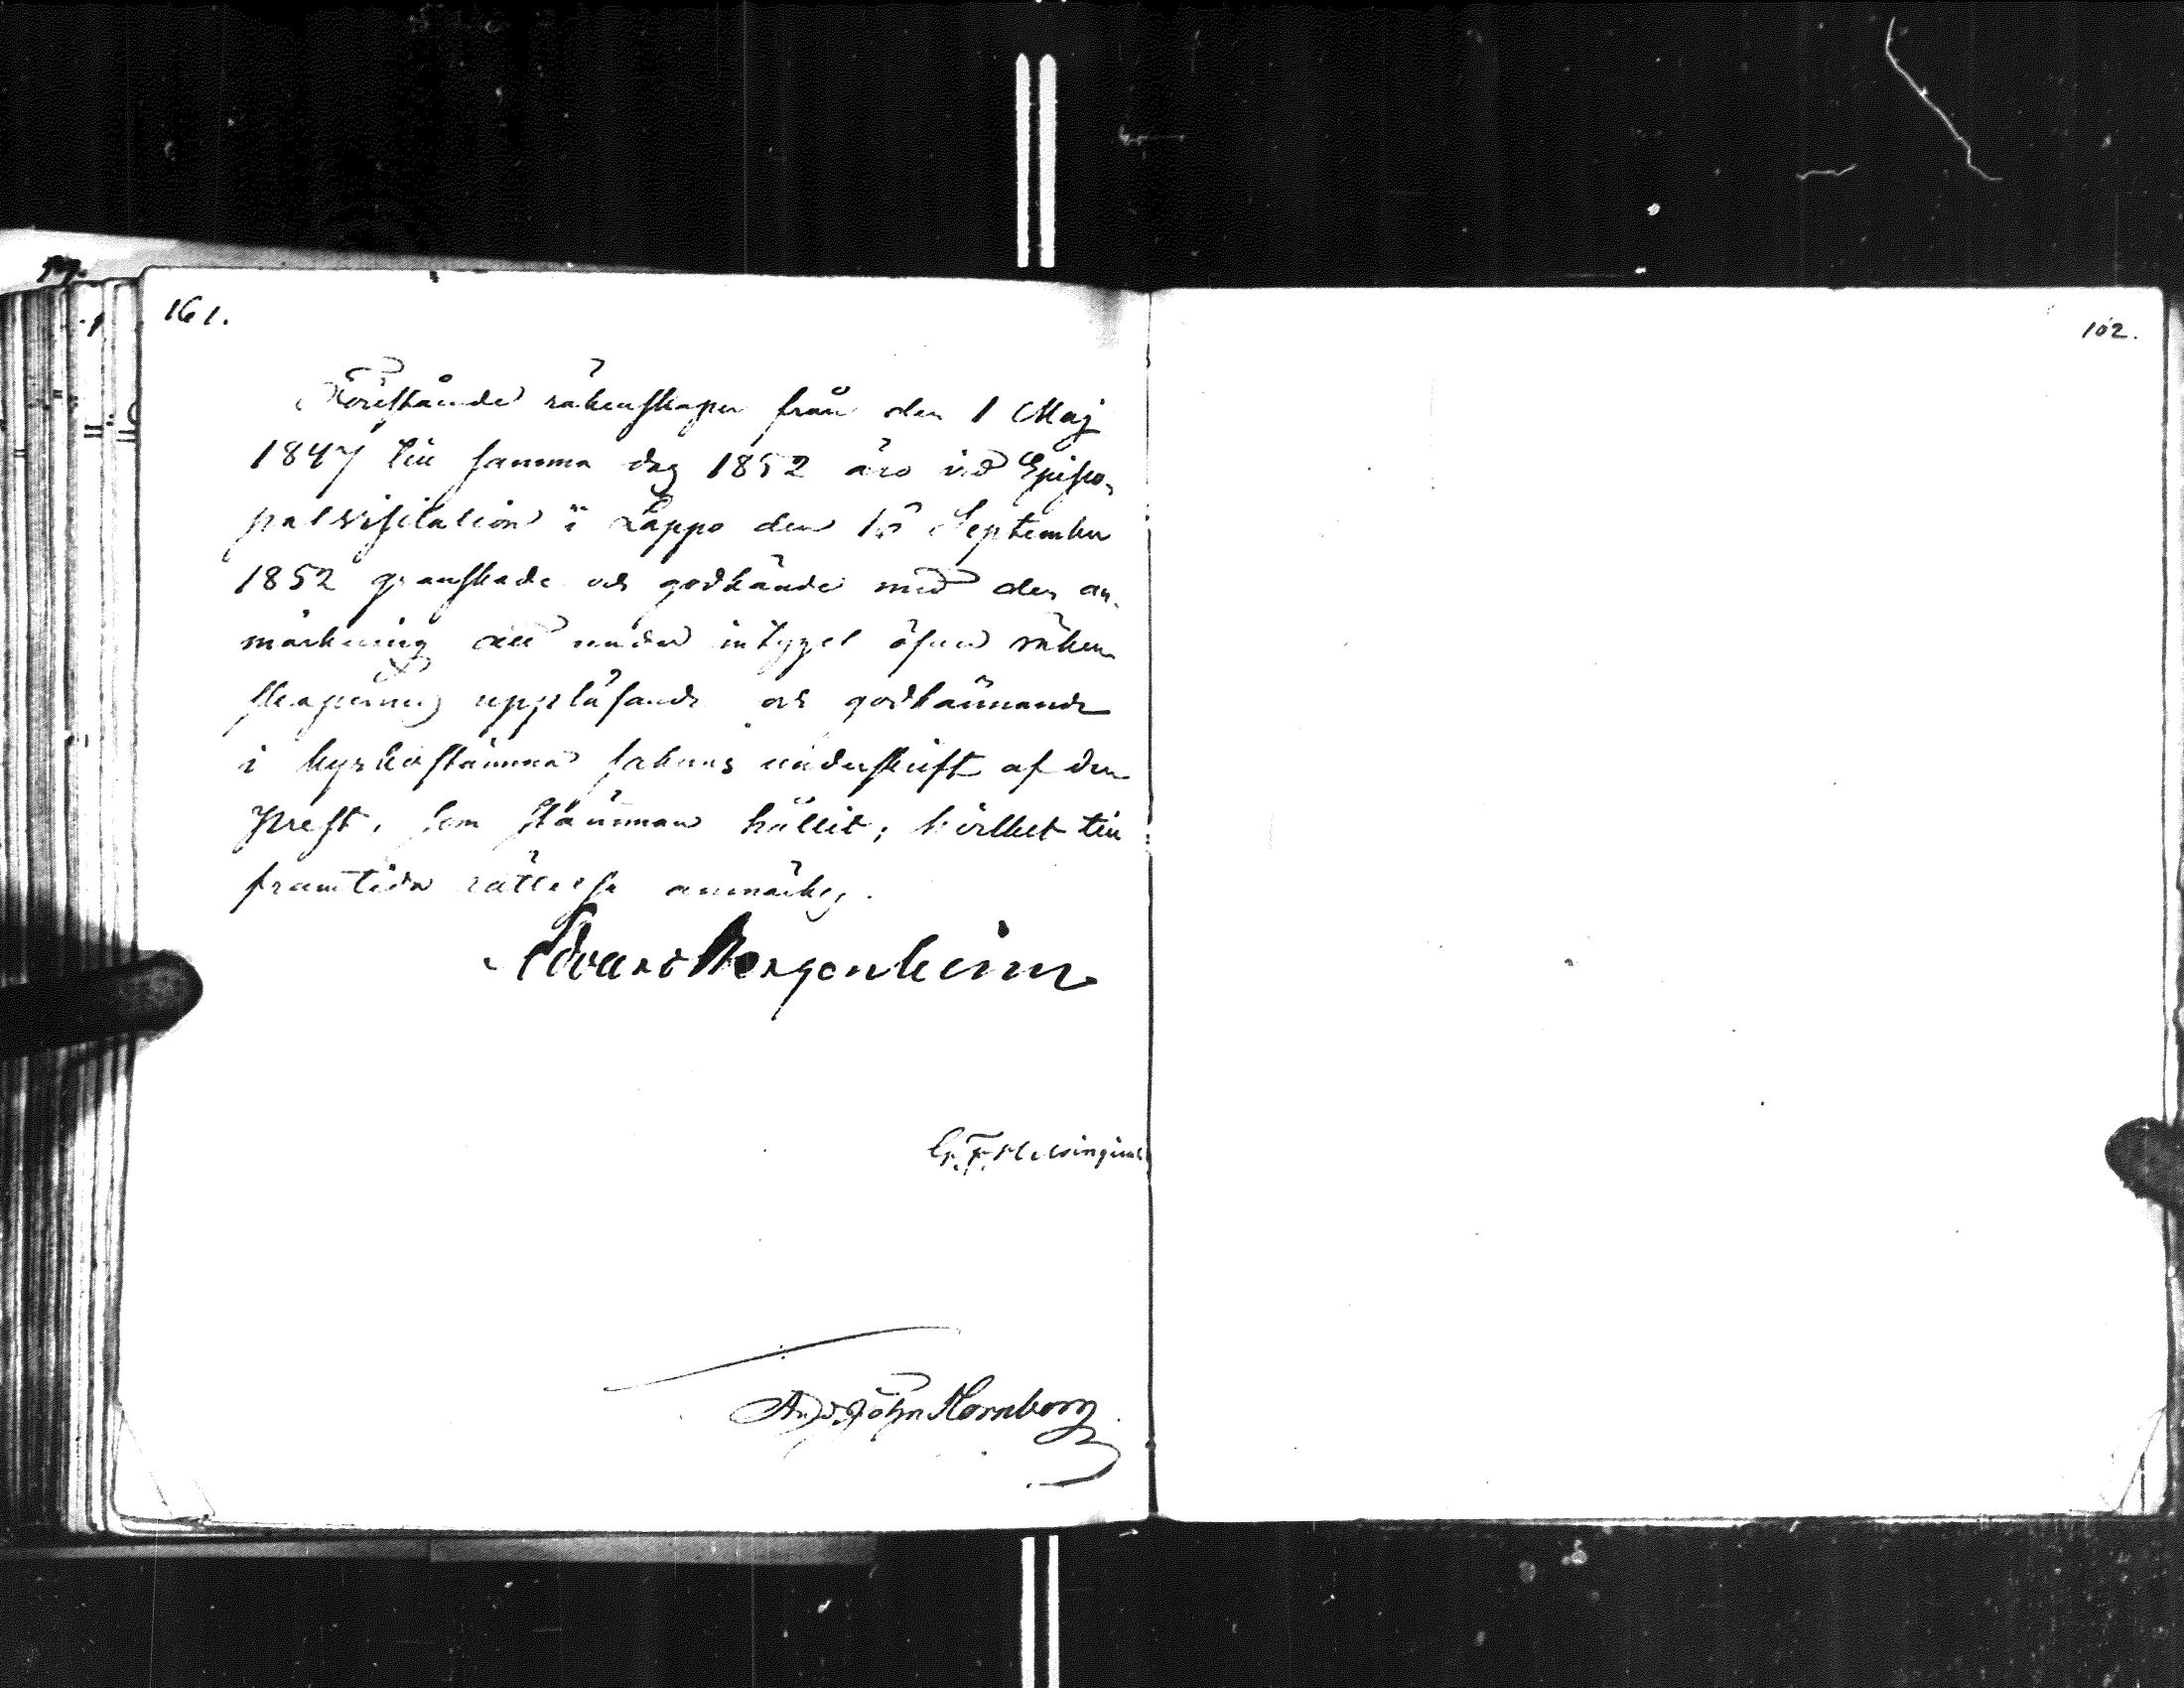 161.
102.
Förestående räkenskaper från den 1 Maj
1847 till samma dag 1852 äro vid Episco-
palvisitation i Lappo den September
1852 granskade och godkände med den an-
märkning att under intyget öfver räken-
skapernes uppläsande och godkännande
i kyrkostämma saknas underskrift af den
Prest, som stämman hållit; hvilket till
framtida rättelse anmärkes.
Edvard Bergenheim
G. F. Helsingius
And. Joh. Hornborg